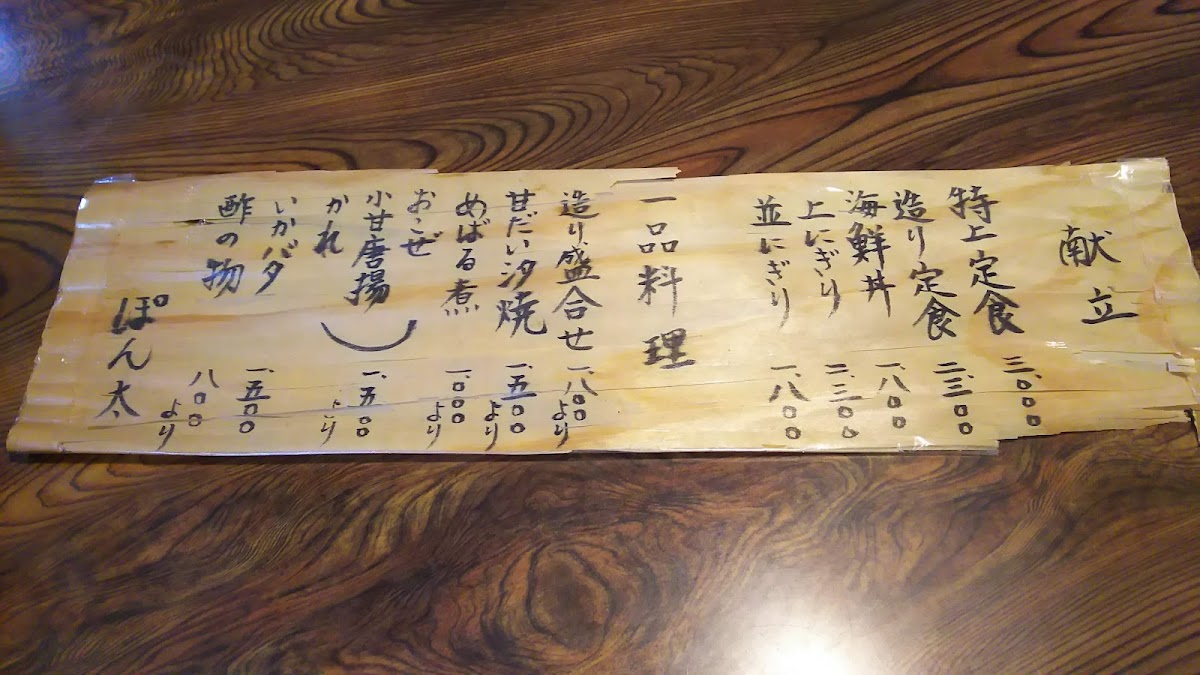 献立
特上定食 三、〇〇〇
造り定食 二、三〇〇
海鮮丼 一、八〇〇
上にぎり 二、三〇〇
並にぎり 一、八〇〇
一品料理
造り盛合せ 一、八〇〇より
甘だい汐焼 一、五〇〇より
めばる煮 一、〇〇〇より
おこぜ
小甘唐揚 一、五〇〇より
かれ
いかバタ 一、五〇〇
酢の物 八〇〇より
ぽん太